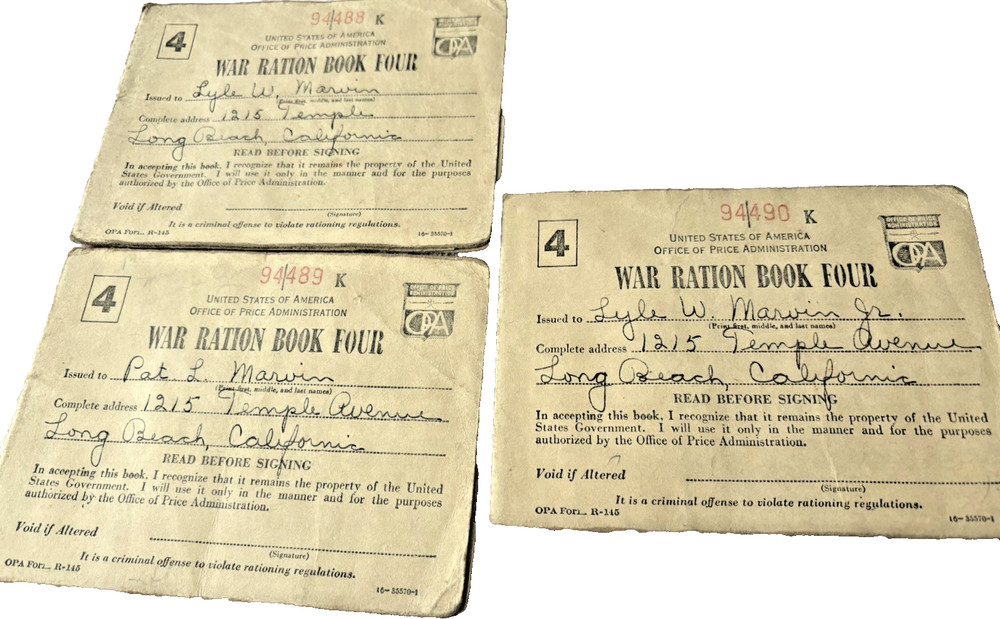 94488 K
4
UNITED STATES OF AMERICA
OFFICE OF PRICE ADMINISTRATION
OPA
WAR RATION BOOK FOUR
Issued to Lyle W. Marvin
(Print first, middle, and last names)
Complete address 1215 Temple
Long Beach, California
READ BEFORE SIGNING
In accepting this book, I recognize that it remains the property of the United
States Government. I will use it only in the manner and for the purposes
authorized by the Office of Price Administration.
Void if Altered
(Signature)
It is a criminal offense to violate rationing regulations.
OPA Form R-145
16-35570-1
94489 K
4
UNITED STATES OF AMERICA
OFFICE OF PRICE ADMINISTRATION
OFFICE OF PRICE
ADMINISTRATION
OPA
WAR RATION BOOK FOUR
Issued to Pat L. Marvin
(Print first, middle, and last names)
Complete address 1215 Temple Avenue
Long Beach, California
READ BEFORE SIGNING
In accepting this book, I recognize that it remains the property of the United
States Government. I will use it only in the manner and for the purposes
authorized by the Office of Price Administration.
Void if Altered
(Signature)
It is a criminal offense to violate rationing regulations.
OPA Form R-145
16-35570-1
94490 K
4
UNITED STATES OF AMERICA
OFFICE OF PRICE ADMINISTRATION
OFFICE OF PRICE
ADMINISTRATION
OPA
WAR RATION BOOK FOUR
Issued to Lyle W. Marvin Jr.
(Print first, middle, and last names)
Complete address 1215 Temple Avenue
Long Beach, California
READ BEFORE SIGNING
In accepting this book, I recognize that it remains the property of the United
States Government. I will use it only in the manner and for the purposes
authorized by the Office of Price Administration.
Void if Altered
(Signature)
It is a criminal offense to violate rationing regulations.
OPA Form R-145
16-35570-1